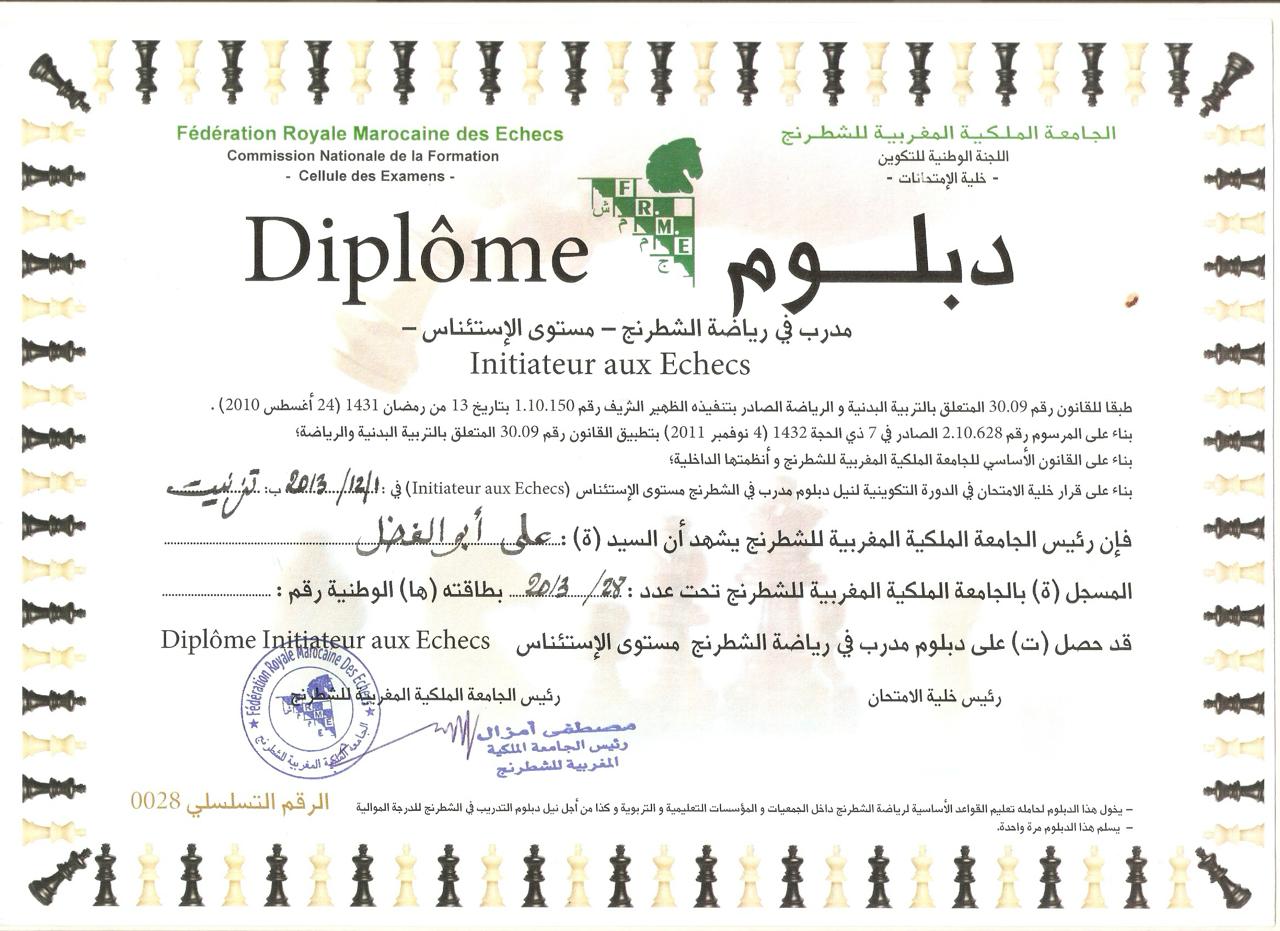 Fédération Royale Marocaine des Echecs
Commission Nationale de la Formation
- Cellule des Examens -
الجامعة الملكية المغربية للشطرنج
اللجنة الوطنية للتكوين
- خلية الإمتحانات -
F.R.M.E
ش م م ج
Diplôme
دبلـــوم
مدرب في رياضة الشطرنج – مستوى الإستئناس –
Initiateur aux Echecs
طبقا للقانون رقم 30.09 المتعلق بالتربية البدنية و الرياضة الصادر بتنفيذه الظهير الشريف رقم 1.10.150 بتاريخ 13 من رمضان 1431 (24 أغسطس 2010) .
بناء على المرسوم رقم 2.10.628 الصادر في 7 ذي الحجة 1432 (4 نوفمبر 2011) بتطبيق القانون رقم 30.09 المتعلق بالتربية البدنية والرياضة؛
بناء على القانون الأساسي للجامعة الملكية المغربية للشطرنج و أنظمتها الداخلية؛
بناء على قرار خلية الامتحان في الدورة التكوينية لنيل دبلوم مدرب في الشطرنج مستوى الإستئناس (Initiateur aux Echecs) في : 1/12/2013 ب: تزنيت
فإن رئيس الجامعة الملكية المغربية للشطرنج يشهد أن السيد (ة) : على أبو الفضل
المسجل (ة) بالجامعة الملكية المغربية للشطرنج تحت عدد : 28/ 2013 بطاقته (ها) الوطنية رقم :
قد حصل (ت) على دبلوم مدرب في رياضة الشطرنج مستوى الإستئناس Diplôme Initiateur aux Echecs
رئيس خلية الامتحان
رئيس الجامعة الملكية المغربية للشطرنج
Fédération Royale Marocaine Des Echecs
الجامعة الملكية المغربية للشطرنج
مصطفى أمزال
رئيس الجامعة الملكية
المغربية للشطرنج
الرقم التسلسلي 0028
– يخول هذا الدبلوم لحامله تعليم القواعد الأساسية لرياضة الشطرنج داخل الجمعيات و المؤسسات التعليمية و التربوية و كذا من أجل نيل دبلوم التدريب في الشطرنج للدرجة الموالية
– يسلم هذا الدبلوم مرة واحدة.